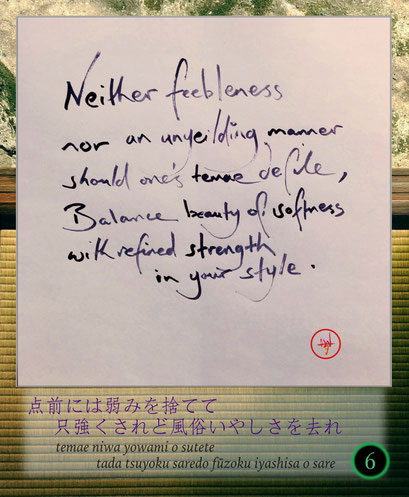 Neither feebleness
nor an unyeilding manner
should one's temae defile,
Balance beauty of softness
with refined strength
in your style.
点前には弱みを捨てて
只強くされど風俗いやしさを去れ
temae niwa yowami o sutete
tada tsuyoku saredo fūzoku iyashisa o sare
6